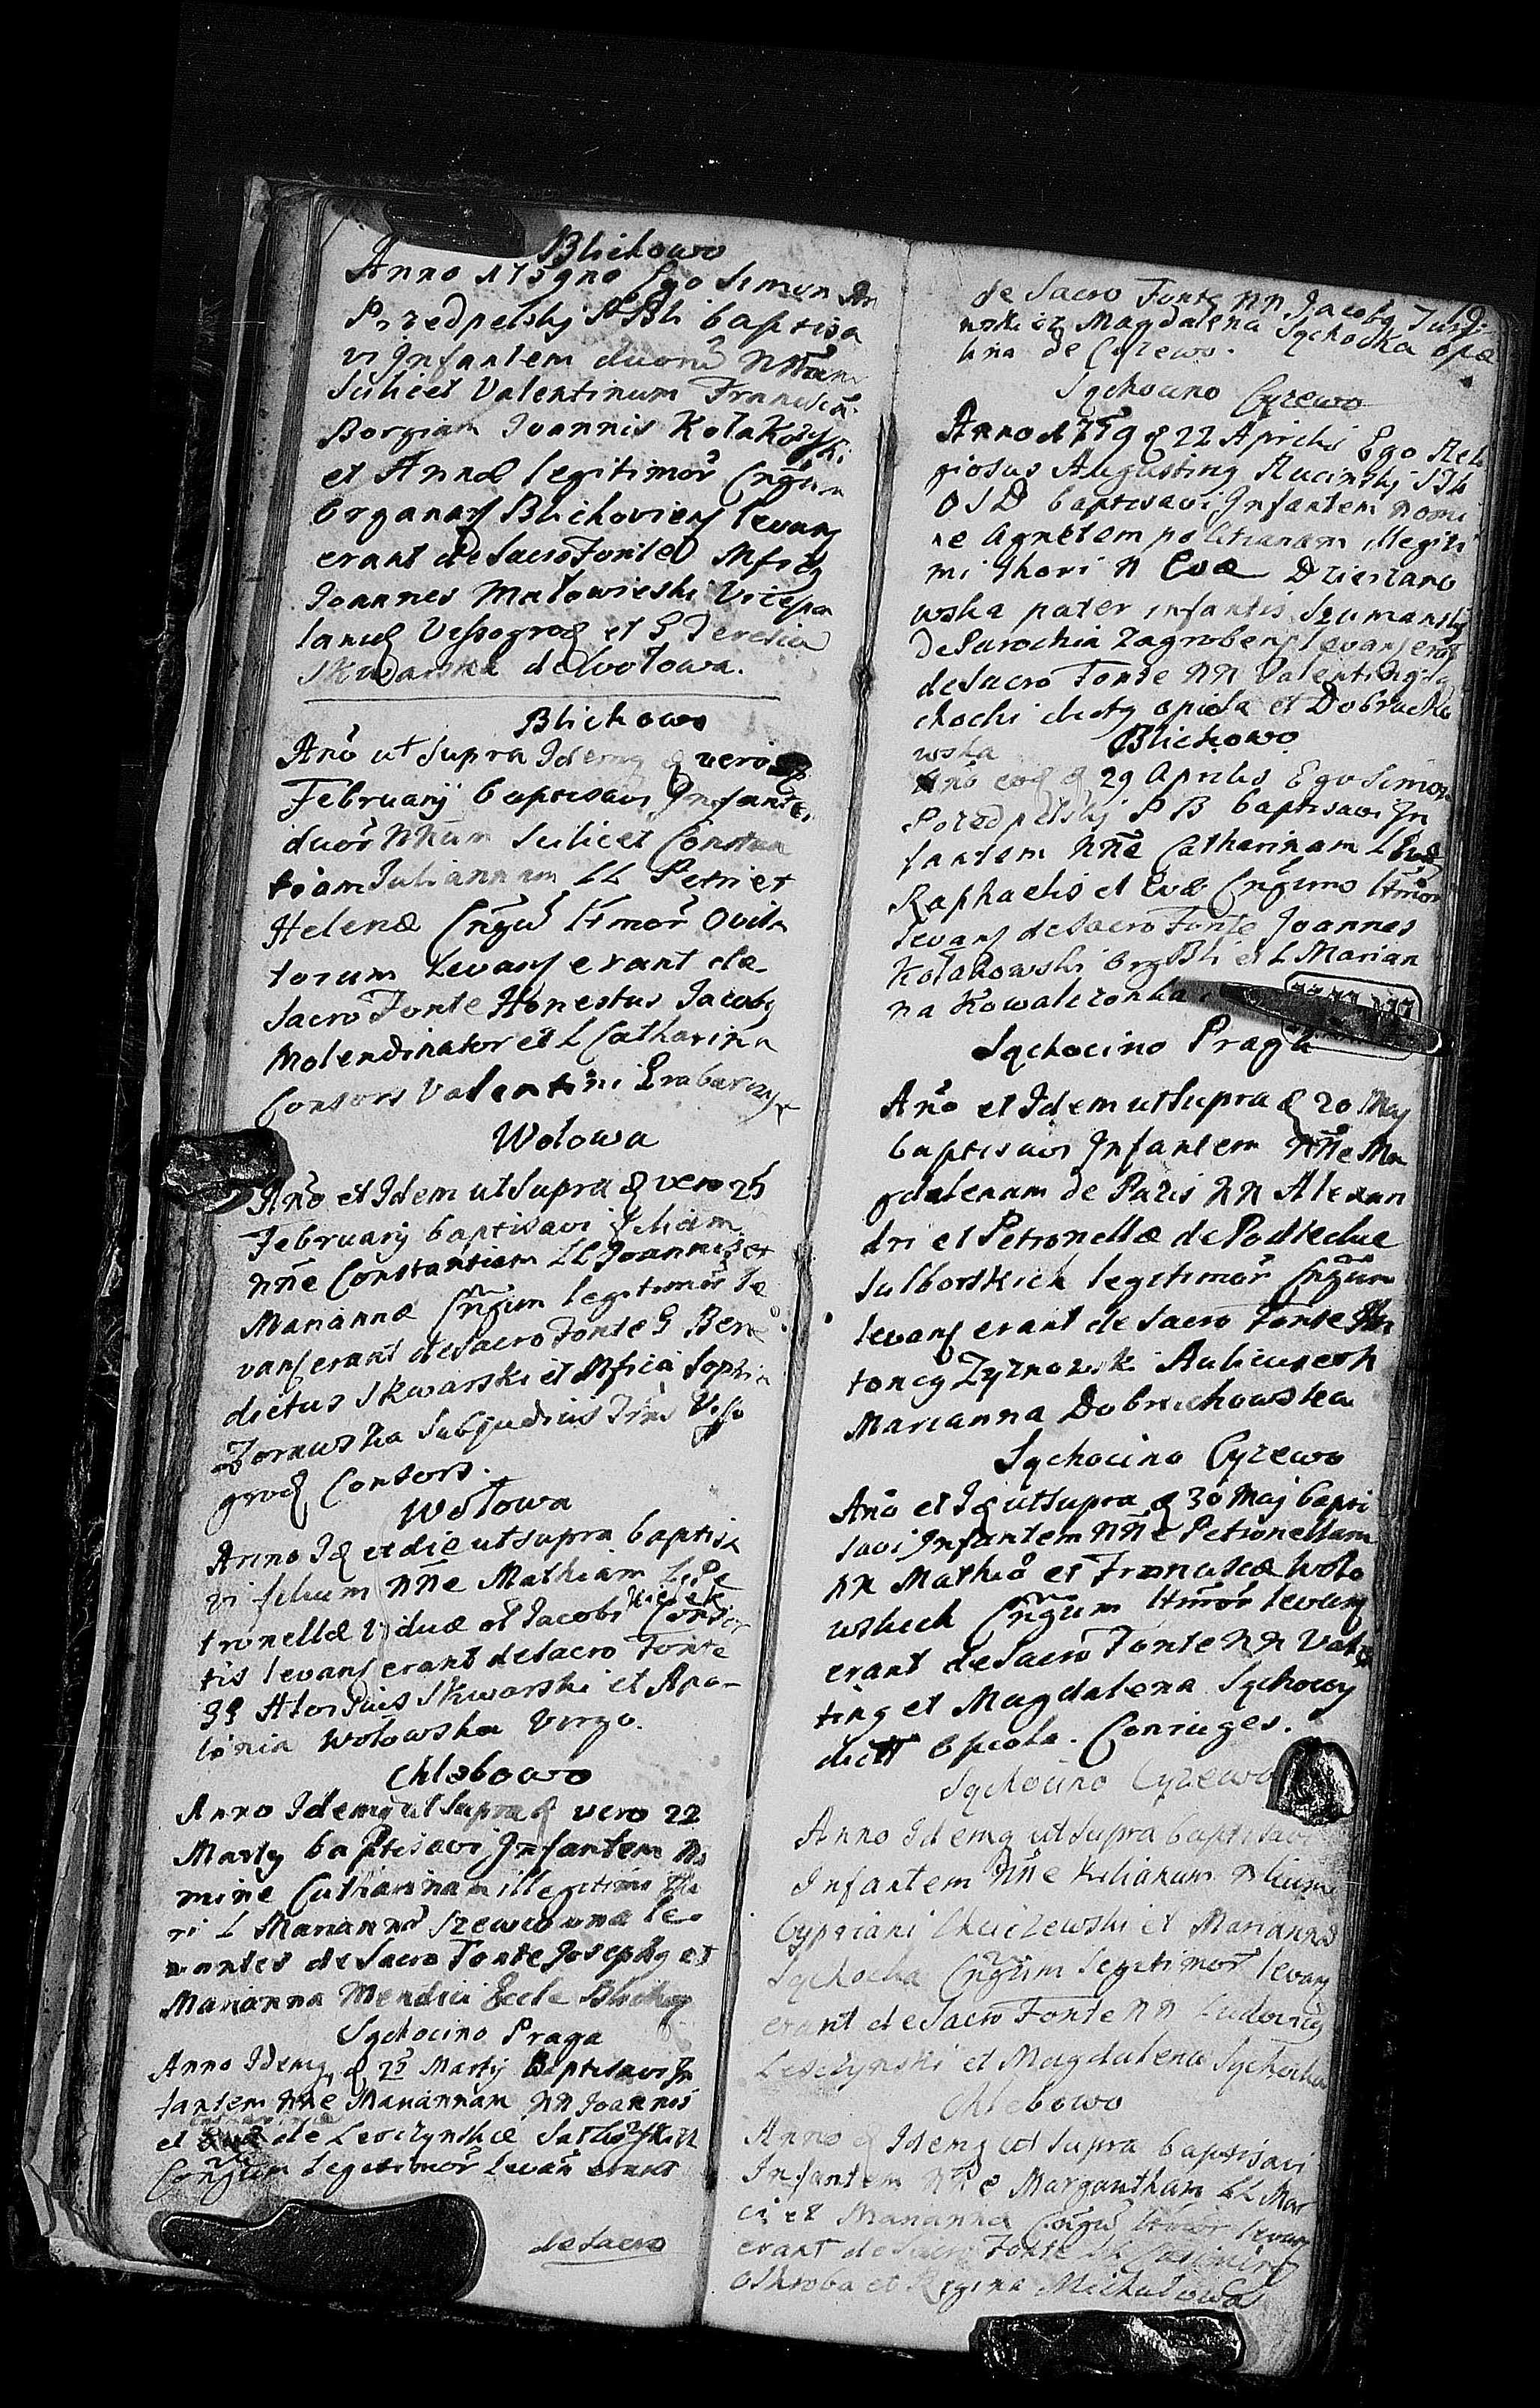 Blichowo
Anno 1759no Ego Simon An
Przedpelskj PBli baptisa
vi Infantem duorũ NNĩum
Scilicet Valentinum Franciscũ
Borgiam Joannis Kołakowski
et Annæ legitimoř Cñgũm
Organarÿ Blichovienſ levanſ
erant de Sacro Fonte Mfcg
Joannes Małowieski Vicepa
lanuſ Vissogroḑ et G Teresia
Skwarska de Wołowa.
Blichowo
Año ut Supra Idemq ḑ vero
Februarÿ baptisavi Infante
duoř NNĩum Scilicet Constan
tiam Juliannam LL Petri et
Helenæ Cñgũ Ltmoř Ovila
torum Levanſ erant de
Sacro Fonte Honestus Jacobg
Molendinator et L Catharina
Consors Valentini Grabarczyk
Wołowa
Año et Idem ut Supra ḑ vero 25
Februarÿ baptisavi filiam
NÑe Constantiam LL Joannis et
Mariannæ Cñgũm legitimoř Le
vanſ erant de Sacro Fonte G Bene
dictus Skwarski et Mfica Sophia
Zorawska Subjudicis Trĩs Visso
groḑ Consors.
Wołowa
Anno Iḑ et die ut supra baptisa
vi filium NÑe Mathiam L Pe
tronellæ Viduæ et Jacobi Consor
tis levanſ erant de Sacro Fonte
GG Aloysius Skwarski et Apo-
lonia Wołowska Virgo.
Chlebowo
Anno Idemq ut Supra ḑ vero 22
Martÿ baptisavi Infantem No
mine Catharinam illegitimi Tho
ri L Mariannæ Szewcowna le
vantes de Sacro Fonte Josephg et
Marianna Mendici Eccle Blichoư
Sqchocino Praga
Anno Idemq ḑ 25 Martÿ Baptisavi In
fantem NÑe Mariannam NN Joannis
et de Lesczynskie Sulborskich
Cõngũm Legitimoř Levañ erant
de Sacro
19
de Sacro Fonte NN Jacobg
et Magdalena Sqchocka opa
lina de Cyzewo.
Sqchocino Cyzewo
Anno 1759 ḑ 22 Aprilis Ego Reli
giosus Augusting Rucinskj
OSD baptisavi Infantem nomi
ne Agnetem politianam illegiti
mi thori N Evæ Dzierzano
wska pater infantis Szumanskj
de Parochia Zagrobenſ levanſ erant
de Sacro Fonte NN Valenting Sq
chocki dictg opiela et Dobracho
wska
Blichowo
Año eoḑ ḑ 29 Aprilis Ego Simon
Przedpelskj PB baptisavi In
fantem NÑe Catharinam
Raphaelis et Evæ Cñgũmo Ltmoř
levanſ de Sacro Fonte Joannes
Kołakowski Org Bli et L Marian
na Kowalczonka
Sqchocino Praga
Año et Idem ut Supra ḑ 20 Maj
baptisavi Infantem NÑe Ma
gdalenam de Pazis NN Alexan
dri et Petronellæ de Podleckie
Sulborskich legitimoř Cñgũm
levanſ erant de Sacro Fonte An
toncg Zyznowski
Marianna Dobrachowska
Sqchocino Cyzewo
Año et Iḑ ut Supra ḑ 30 Maj bapti
savi Infantem NÑe Petronellam
NN Mathiæ et Franciscæ Woło
wskich Cñgũm Ltmoř levanſ
erant de Sacro Fonte NN Valen
ting et Magdalena Sqchoccy
dicti Opiela. Coniuges.
Sqchocino Cyzewo
Anno Idemq ut Supra baptisavi
Infantem NÑe Kilianum filium
Cypriani et Mariannæ
Sqchocka Cñgũm Legitimoř levanſ
erant de Sacro Fonte NN Ludovicg
Lesczynski et Magdalena Sqchocka
Chlebowo
Anno ḑ Idemq ut Supra baptisavi
Infantem NÑe Margaritham LL Mar
ci et Mariannæ Cõngũ Ltmoř levanſ
erant de Sacro Fonte LL Casimirg
Oskroba et Regina Michałowa